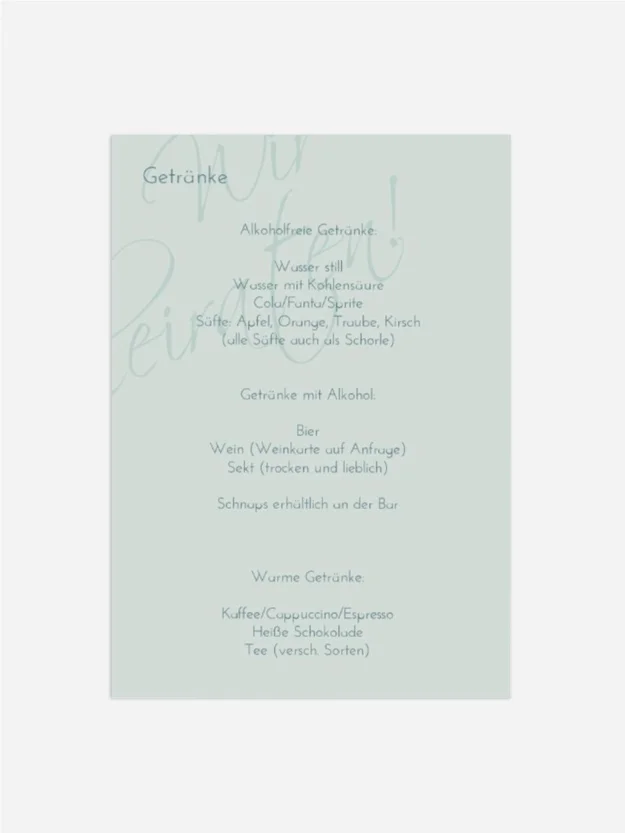 Wir
heiraten!
Getränke
Alkoholfreie Getränke:
Wasser still
Wasser mit Kohlensäure
Cola/Fanta/Sprite
Säfte: Apfel, Orange, Traube, Kirsch
(alle Säfte auch als Schorle)
Getränke mit Alkohol:
Bier
Wein (Weinkarte auf Anfrage)
Sekt (trocken und lieblich)
Schnaps erhältlich an der Bar
Warme Getränke:
Kaffee/Cappuccino/Espresso
Heiße Schokolade
Tee (versch. Sorten)